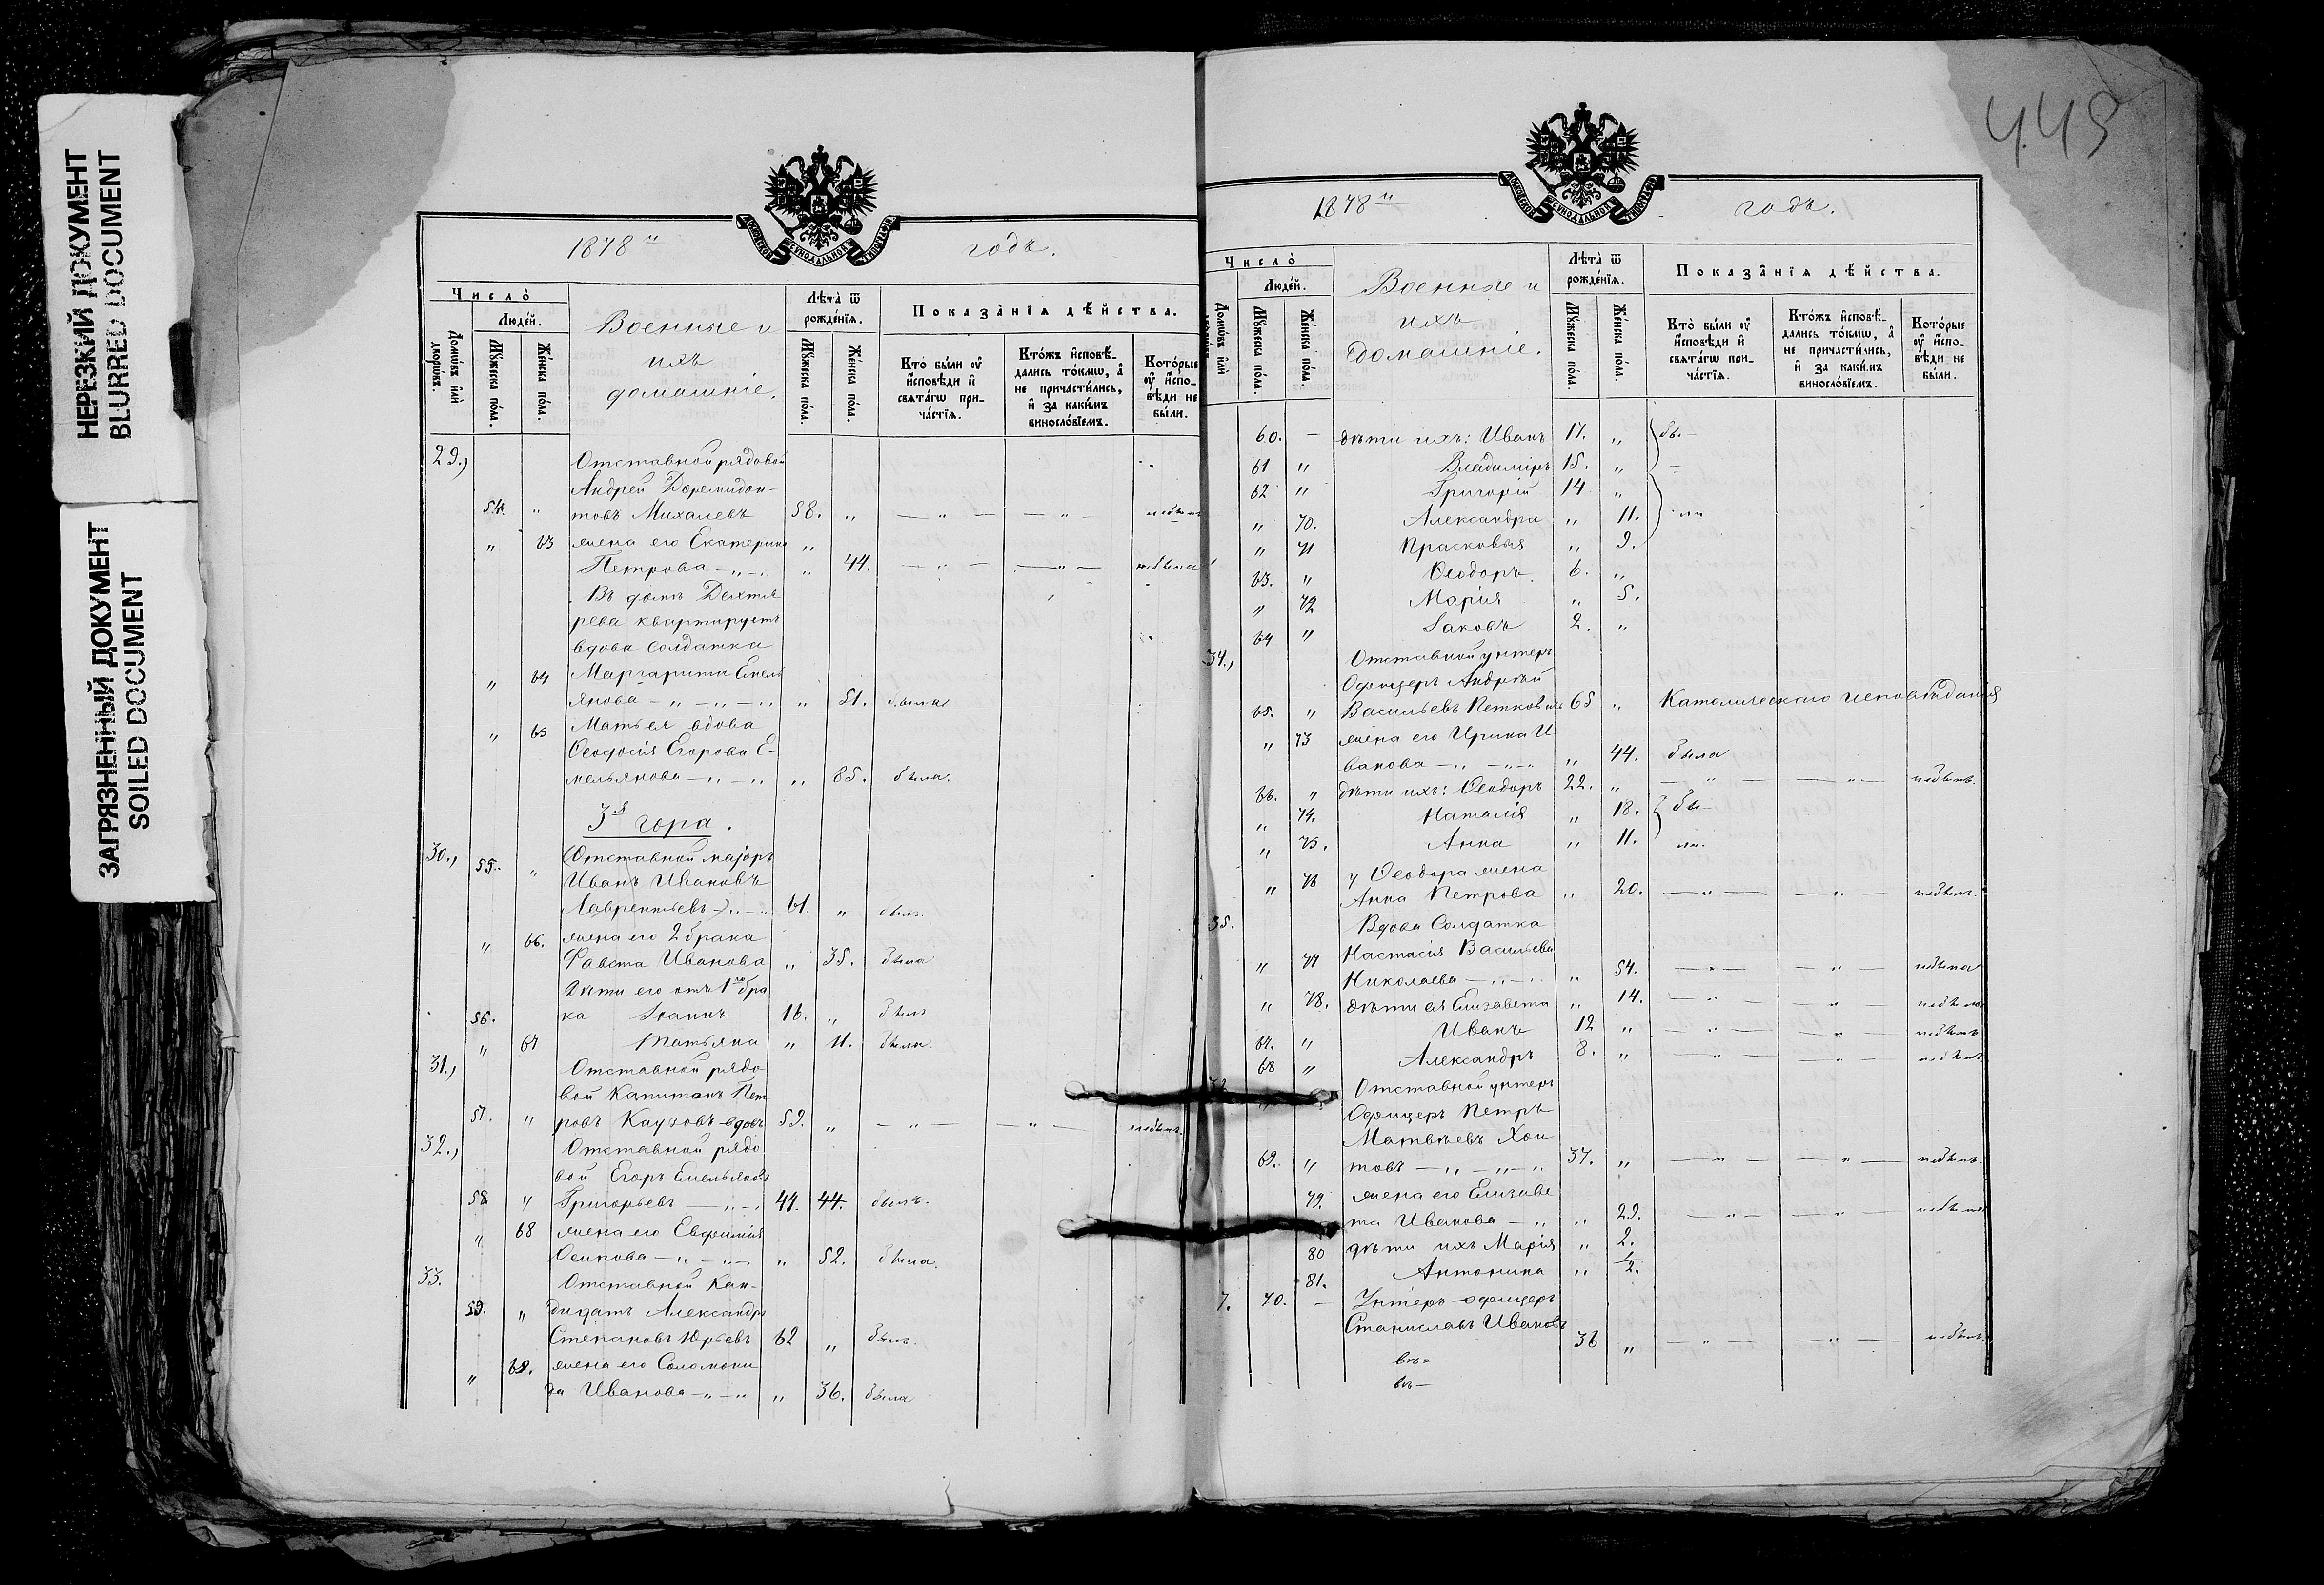 НЕРЕЗКИЙ ДОКУМЕНТ
BLURRED DOCUMENT
ЗАГРЯЗНЕННЫЙ ДОКУМЕНТ
SOILED DOCUMENT
МОСКОВСКОЙ СѴНОДАЛЬНОЙ ТИПОГРАФІИ
1878 й годъ.
Число̀
Люде́й.
Домѡ́въ и҆лѝ дворѡ́въ.
Мꙋ́жеска по́ла.
Же́нска по́ла.
Военные и
ихъ
домашніе.
Лѣ́та ѿ рожде́нїѧ.
Мꙋ́жеска по́ла.
Же́нска по́ла.
Показа̑нїѧ дѣ́йства.
Кто̀ бы́ли ᲂу҆ и҆́сповѣди и҆ свѧта́гѡ при-
ча́стїѧ.
Кто́жъ и҆сповѣ́-
дались то́кмѡ, а҆ не причасти́лись, и҆ за каки́мъ винослѡ́вїемъ.
Кото́рые ᲂу҆ и҆спо-
вѣди не бы́ли.
29.) Отставной рядовой
Андрей Доремидон-
54. " товъ Михалевъ 58. " — " — — " — небылъ
" 63 жена его Екатерина "
Петрова — " — " 44. — " — — " — небыла
Въ домѣ Дехтя
рева квартируетъ
вдова солдатка
" 64 Маргарита Емель
янова — " — " — " " 51. была
" 65 Мать ея вдова
Ѳеодосія Егорова Е-
мельянова — " — " " 85. была.
3я гора.
30., 55. " Отставной маjоръ
Иванъ Ивановъ
Лаврентьевъ — " — 61. " былъ.
" 66. жена его 2 брака
Фавста Иванова " 35. была
Дѣти его отъ 1го бра
56. ка Іоаннъ 16. " былъ
" 67 Татьяна " 11. была.
31.) Отставной рядо
вой Капитанъ Пет
57. " ровъ Каузовъ вдовъ 59. " — " — — " — небылъ.
32., Отставной рядо
вой Егоръ Емельяновъ
58 " Григорьевъ — " — 44. 44. былъ.
" 68 жена его Евфимія
Осипова — " — " — " 52. была.
33. Отставной Кан-
59. " дидатъ Александръ
Степановъ Юрьевъ 62 " былъ.
" 69. жена его Соломони
да Иванова — " — " " 36. была
445
МОСКОВСКОЙ СѴНОДАЛЬНОЙ ТИПОГРАФІИ
1878 й годъ.
Число̀
Люде́й.
Домѡ́въ и҆лѝ
Мꙋ́жеска по́ла.
Же́нска по́ла.
Военные и
ихъ
домашніе.
Лѣ́та ѿ рожде́нїѧ.
Мꙋ́жеска по́ла.
Же́нска по́ла.
Показа̑нїѧ дѣ́йства.
Кто̀ бы́ли ᲂу҆ и҆сповѣди и҆ свѧта́гѡ при-
ча́стїѧ.
Кто́жъ и҆сповѣ́-
дались то́кмѡ, а҆ не причасти́лись, и҆ за каки́мъ винослѡ́вїемъ.
Кото́рые ᲂу҆ и҆спо-
вѣди не бы́ли.
60. — дѣти ихъ: Иванъ 17. " бы —
61 " Владиміръ 15. " —
62 " Григорій 14 "
" 70. Александра " 11. ли
" 71 Прасковья " 9.
63. " Ѳеодоръ 6. "
" 72 Марія " 5.
64 " Іаковъ 2. "
34., Отставной унтеръ
Офицеръ Андрей
65. " Васильевъ 65 " Католическаго исповѣданія
" 73 жена его Ирина И
ванова — " — " — " 44. была
66. " дѣти ихъ: Ѳеодоръ 22. " — " — — " — небылъ.
" 74. Наталія " 18. бы —
" 75. Анна " 11. ли.
" 76 у Ѳеодора жена
Анна Петрова " 20. — " — — " — небыла.
35. Вдова Солдатка
" 77 Настасія Васильева
Николаева — " — " " 54. — " — — " — небыла
" 78. дѣти ея Елизавета " 14. — " — " небыла
67. " Иванъ 12 " — " — — " небылъ
68 " Александръ 8. " — " — — " — небылъ
Отставной унтеръ
Офицеръ Петръ
Матвѣевъ Хои
69. " товъ — " — " — " 37. " — " — — " — небылъ.
79. жена его Елизаве
та Иванова — " " 29. — " — — " — небыла
80 дѣти ихъ Марія " 2.
81. Антонина " 1/2.
7. 70. — Унтеръ-офицеръ
Станиславъ Ивановъ
36 " — " — — " — небылъ